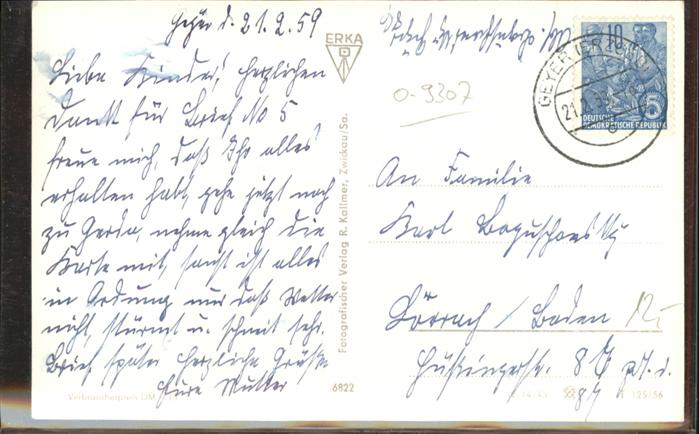 Geyer d. 21.2.59
Liebe Kinder! herzlichen
Dank für Brief No 5
freue mich, daß Ihr alles
erhalten habt, gehe jetzt noch
zu Gerda, nehme gleich die
Karte mit, sonst ist alles
in Ordnung nur daß Wetter
nicht, stürmt u. schneit sehr.
Brief später herzliche Grüße
Eure Mutter
Verbraucherpreis DM
6822
ERKA
Fotografischer Verlag R. Kallmer, Zwickau/Sa.
0-9307
10
5
DEUTSCHE
DEMOKRATISCHE REPUBLIK
GEYER (ERZGEB)
21.2.59
An Familie
Karl Boguschewsky
Lörrach / Baden
12,-
Hüsingerstr. 8
87
125/56